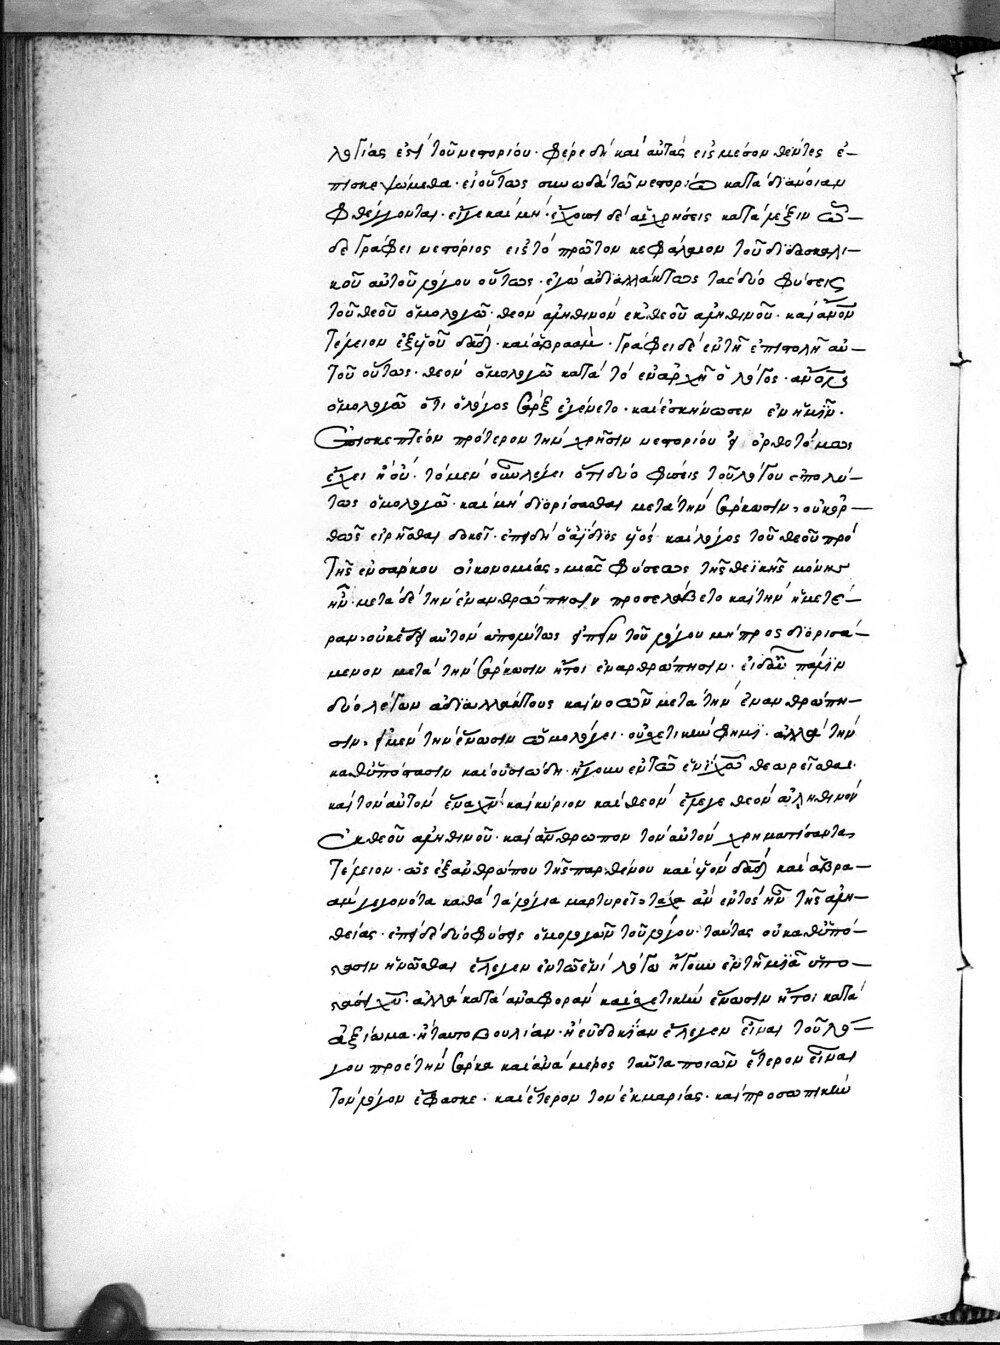 λογίας ἐστὶ τοῦ νεστορίου· φέρε δὴ καὶ αὐτὰς εἰς μέσον θέντες ἐ-
πισκεψώμεθα· εἰ οὕτως συνωδὰ τῶ νεστορίω κατὰ διάνοιαν
φθέγγονται· εἴγε καὶ μή· ἔχουσι δὲ αἱ χρήσεις κατὰ λέξιν ὧ-
δε γράφει νεστόριος εἰς τὸ πρῶτον κεφάλαιον τοῦ διδασκαλι-
κοῦ αὐτοῦ λόγου οὕτως· ἐγὼ ἀδιαλλάκτως τὰς δύο φύσεις
τοῦ θεοῦ ὁμολογῶ· θεὸν ἀληθινὸν ἐκ θεοῦ ἀληθινοῦ· καὶ ἄνον
τέλειον ἐξ υἱοῦ δαδ· καὶ ἀβραάμ· γράφει δὲ ἐν τῆ ἐπιστολῆ αὐ-
τοῦ οὕτως· θεὸν ὁμολογῶ κατὰ τὸ ἐν ἀρχῆ ὁ λόγος·
ὁμολογῶ ὅτι ὁ λόγος σὰρξ ἐγένετο· καὶ ἐσκήνωσεν ἐν ἡμῖν·
Ἐπισκεπτέον πρότερον τὴν χρῆσιν νεστορίου εἰ ὀρθοτόμως
ἔχει ἢ οὔ· τὸ μὲν οὖν λέγει ὅτι δύο φύσεις τοῦ λόγου ἀπολύ-
τως ὁμολογῶ· καὶ μὴ διορίσασθαι μετὰ τὴν σάρκωσιν, οὐκ ὀρ-
θῶς εἰρῆσθαι δοκεῖ· ἐπειδὴ ὁ ἀΐδιος υἱὸς καὶ λόγος τοῦ θεοῦ πρὸ
τῆς ἐνσάρκου οἰκονομίας, μιᾶς φύσεως τῆς θεϊκῆς μόνης
ἦν· μετὰ δὲ τὴν ἐνανθρώπησιν προσελάβετο καὶ τὴν ἡμετέ-
ραν, οὐκ ἔδει αὐτὸν ἀπολύτως εἰπεῖν τοῦ λόγου μὴ προσδιορισά-
μενον μετὰ τὴν σάρκωσιν ἤτοι ἐνανθρώπησιν· εἰ δ' οὖν πάλιν
δύο λέγων ἀδιαλλάκτους καὶ νοῶν μετὰ τὴν ἐνανθρώπη-
σιν, εἰ μὲν τὴν ἕνωσιν ὡμολόγει· οὐ σχετικὴν φημί· ἀλλὰ τὴν
καθ' ὑπόστασιν καὶ οὐσιώδη· ἤγουν ἐν τῶ ἑνὶ χῶ θεωρεῖσθαι·
καὶ τὸν αὐτὸν ἕνα χν καὶ κύριον καὶ θεὸν ἔλεγε θεὸν ἀληθινὸν
ἐκ θεοῦ ἀληθινοῦ· καὶ ἄνθρωπον τὸν αὐτὸν χρηματίσαντα,
τέλειον· ὡς ἐξ ἀνθρώπου τῆς παρθένου καὶ υἱὸν δαδ καὶ ἀβρα-
ὰμ γεγονότα καθὰ τὰ λόγια μαρτυρεῖ, τάχα ἂν ἐντὸς ἦν τῆς ἀλη-
θείας· ἐπειδὲ δύο φύσεις ὁμολογῶν τοῦ λόγου· ταύτας οὐ καθ' ὑπό-
στασιν ἡνῶσθαι ἔλεγεν ἐν τῶ ἑνὶ λόγω ἤγουν ἐν τῆ μιᾶ ὑπο-
στάσει χυ· ἀλλὰ κατὰ ἀναφορὰν καὶ σχετικὴν ἕνωσιν ἤτοι κατὰ
ἀξίωμα· ἢ ταυτοβουλίαν· ἢ εὐδοκίαν ἔλεγεν εἶναι τοῦ λό-
γου πρὸς τὴν σάρκα καὶ ἀνὰ μέρος ταῦτα ποιῶν ἕτερον εἶναι
τὸν λόγον ἔφασκε· καὶ ἕτερον τὸν ἐκ μαρίας· καὶ προσωπικὴν